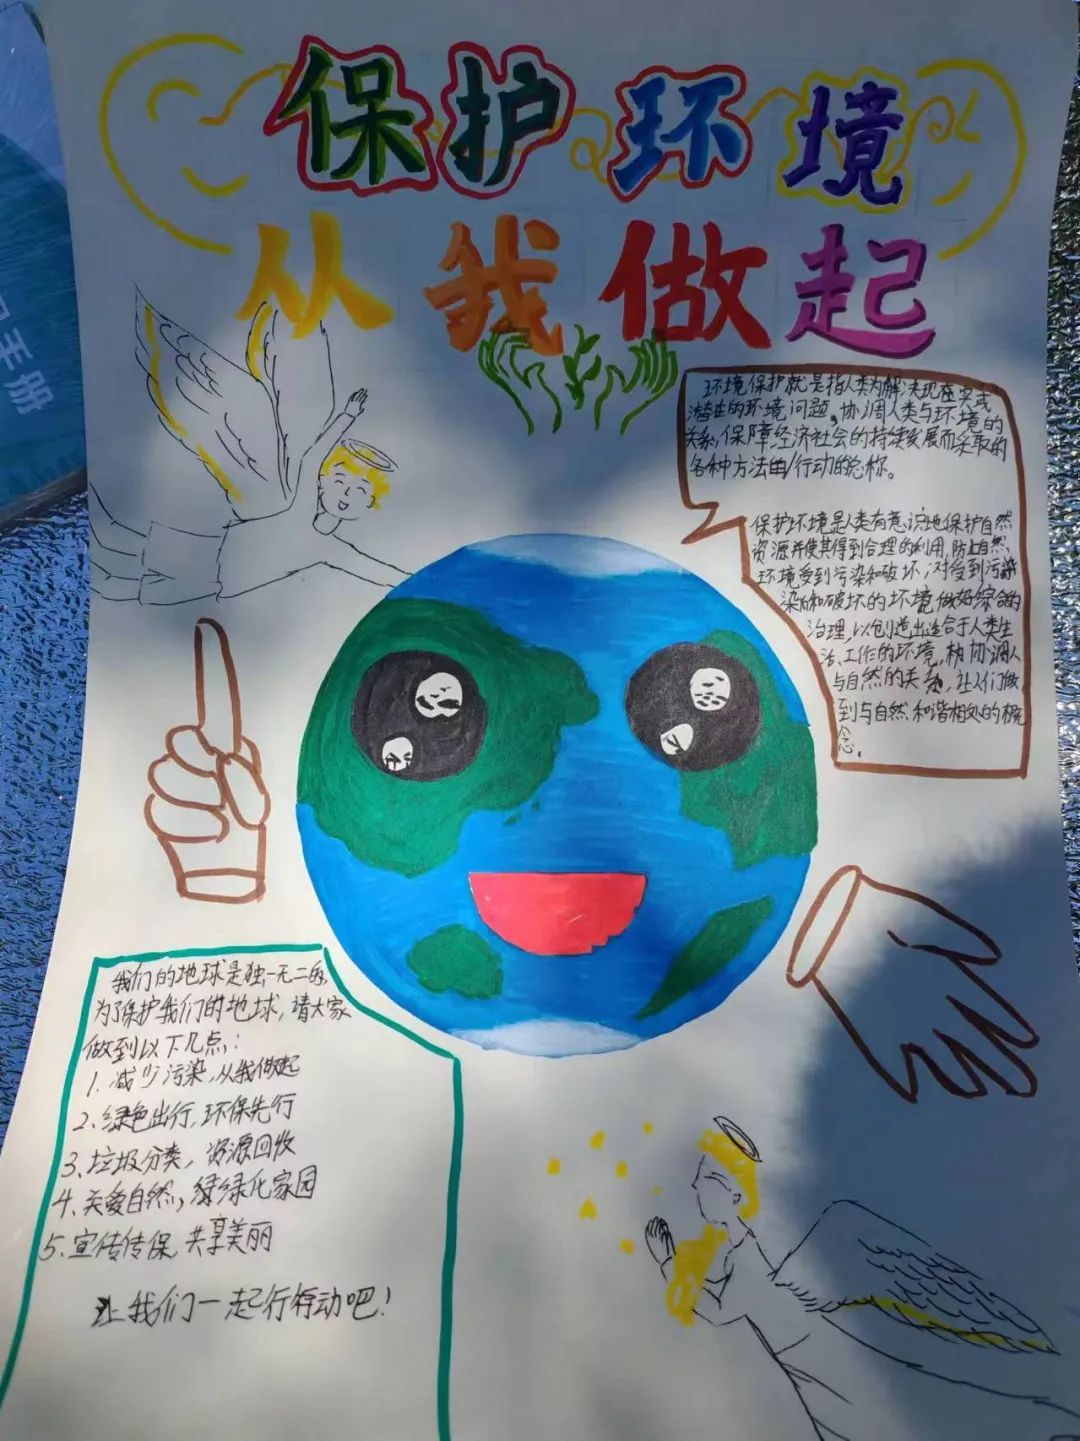 保护环境
从我做起
手册
环境保护就是指人类为解决现在实或
潜在的环境问题，协调人类与环境的
关系，保障经济社会的持续发展而采取的
各种方法的行动的总称。
保护环境是人类有意识地保护自然
资源并使其得到合理的利用，防止自然
环境受到污染和破坏；对受到污染
染和破坏的环境做好综合的
治理，以创造出适合于人类生
活、工作的环境，协调人
与自然的关系，让人们做
到与自然和谐相处的概
念。
我们的地球是独一无二的，
为了保护我们的地球，请大家
做到以下几点：
1. 减少污染，从我做起
2. 绿色出行，环保先行
3. 垃圾分类，资源回收
4. 关爱自然，绿绿化家园
5. 宣传传保，共享美丽
让我们一起行行动吧！